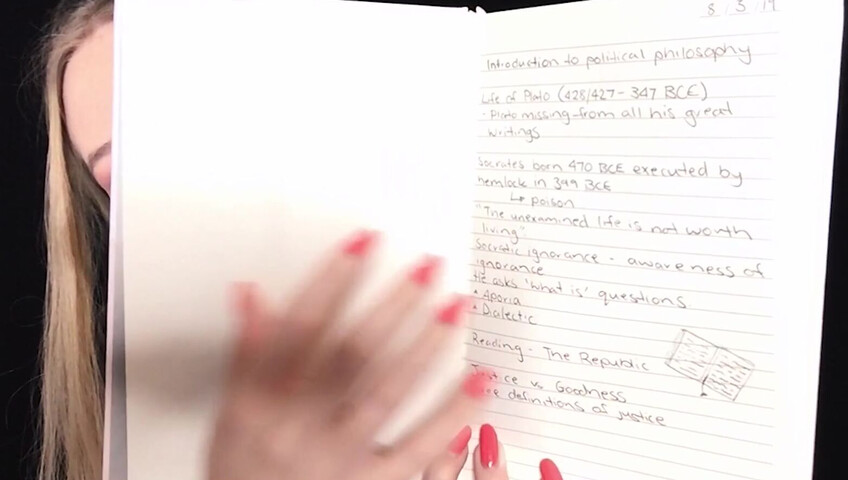 8/3/19
Introduction to political philosophy
Life of Plato (428/427 - 347 BCE)
· Plato missing from all his great
writings
Socrates born 470 BCE executed by
hemlock in 399 BCE
↳ poison
"The unexamined life is not worth
living"
Socratic ignorance - awareness of
ignorance
He asks 'what is' questions
• Aporia
• Dialectic
Reading - The Republic
Justice vs Goodness
definitions of justice